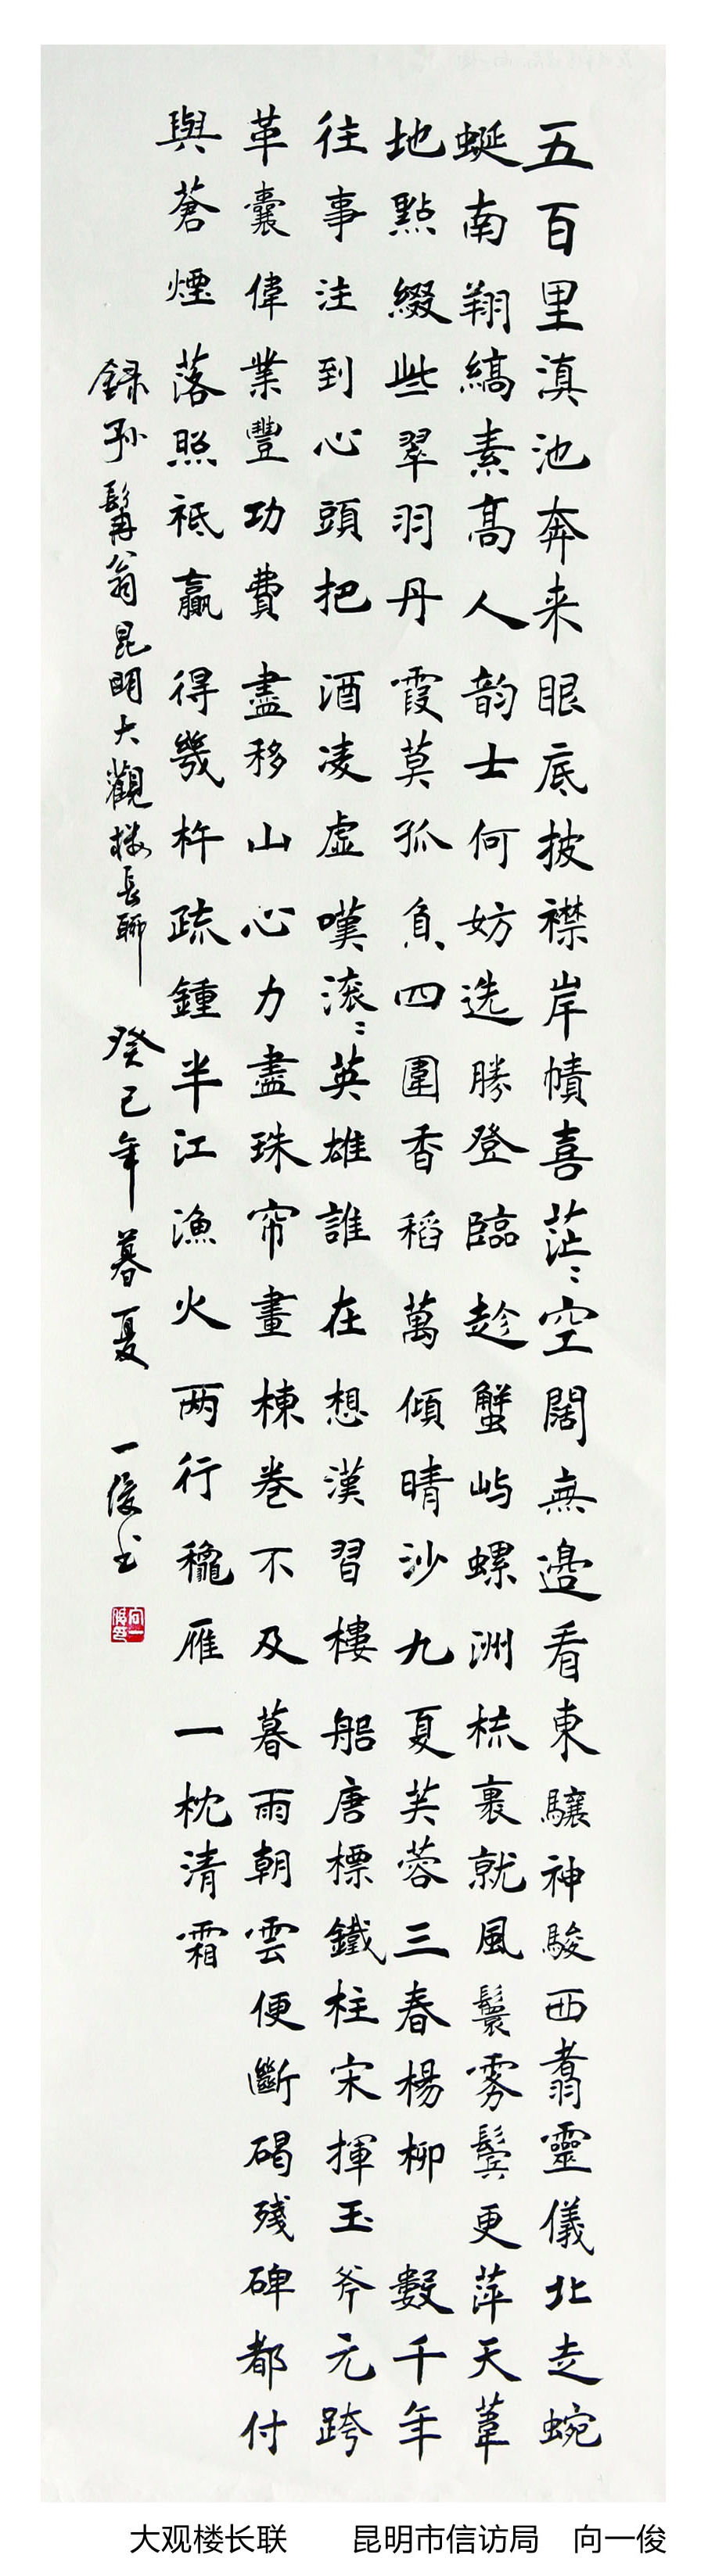 五百里滇池奔来眼底披襟岸幘喜茫〻空闊無邊看東驤神駿西翥靈儀北走蜿
蜒南翔縞素高人韵士何妨选勝登臨趁蟹屿螺洲梳裹就風鬟雾鬓更萍天葦
地點綴些翠羽丹霞莫孤負四圍香稻萬傾晴沙九夏芙蓉三春楊柳 數千年
往事注到心頭把酒凌虚嘆滚〻英雄誰在想漢習樓船唐標鐵柱宋揮玉斧元跨
革囊偉業豐功費盡移山心力盡珠帘畫棟卷不及暮雨朝雲便斷碣殘碑都付
與蒼煙落照祗贏得幾杵疏鍾半江漁火两行穐雁一枕清霜
録孙髯翁昆明大觀楼長聯 癸巳年暮夏 一俊书
向一俊印
大观楼长联 昆明市信访局 向一俊